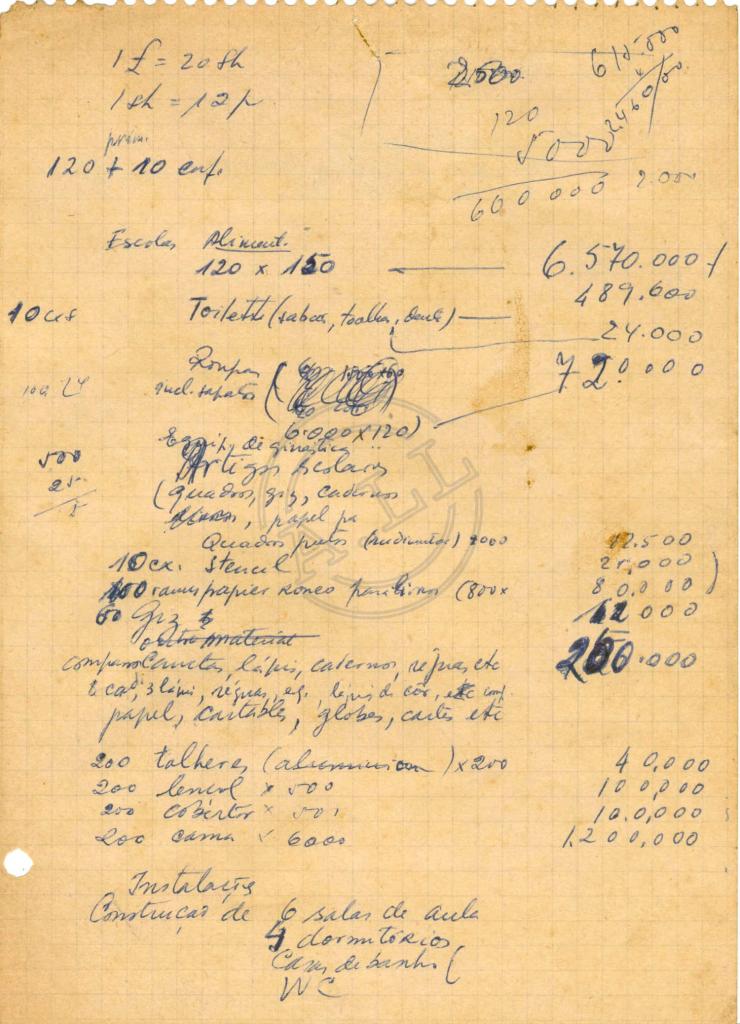 1 £ = 20 sh
1 sh = 12 p
prim.
120 + 10 enf.
2500
615.000
4
2460.000
120
5000
600 000
2.000
Escolas Aliment.
120 x 150
6.570.000
489.600
Toilette (sabão, toalha, dente)
24.000
Roupas
incl. sapatos (
6.000 x 120)
720.000
Equip. de ginástica
500
25
Artigos Escolares
(quadros, giz, cadernos
papel pa
Quadros pretos (rudimentar) 2000
12.500
10 cx. stencil
25.000
100 rames papier roneo para livros (800 x
80,000 )
60 Giz
12 000
outro material
Canetas, lápis, cadernos, réguas, etc
250.000
6 cad, 3 lápis, réguas, lápis de côr, etc
papel, cartables, globes, cartes etc
200 talheres (aluminium) x 200
40,000
200 lençol x 500
100,000
200 cobertor x 500
100,000
200 cama x 6000
1.200,000
Instalação
Construção de 6 salas de aula
4 dormitórios
Casas de banho (
WC
ALL